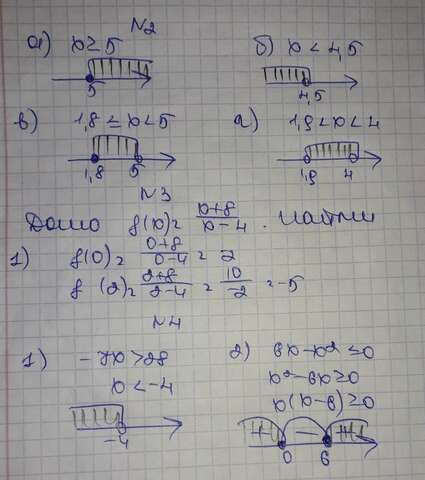 N2
а) x ≥ 5
б) x < 4,5
5
4,5
в) 1,8 ≤ x < 5
г) 1,9 < x < 4
1,8 5
1,9 4
N3
Дано f(x) = x+8/x-4. Найти
1) f(0) = 0+8/0-4 = 2
f(2) = 2+8/2-4 = 10/-2 = -5
N4
1) -7x > 28
2) 6x - x² ≤ 0
x < -4
x² - 6x ≥ 0
x(x-6) ≥ 0
-4
+ - +
0 6